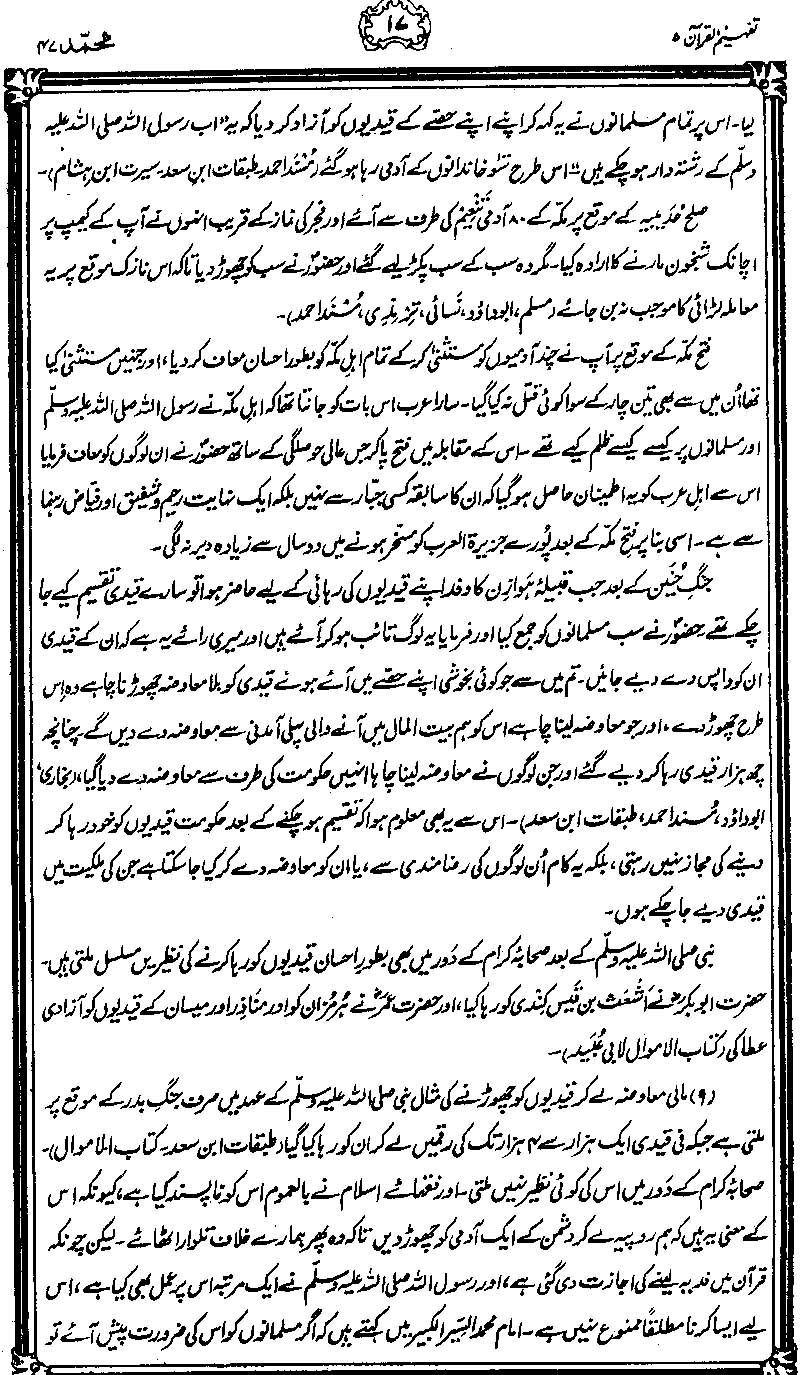 تفہیم القرآن ۵
۱۷
محمد ۴۷
لیا۔ اس پر تمام مسلمانوں نے یہ کہہ کر اپنے اپنے حصّے کے قیدیوں کو آزاد کر دیا کہ یہ ”اب رسول اللہ صلی اللہ علیہ
وسلّم کے رشتہ دار ہو چکے ہیں“ اس طرح سَنو خاندانوں کے آدمی رہا ہو گئے (مُسْنَد احمد۔ طبقات ابن سعد۔ سیرت ابن ہشام)۔
صلح حُدَیبیہ کے موقع پر مکّہ کے ۸۰ آدمی تَنْعِیْم کی طرف سے آئے اور فجر کی نماز کے قریب انہوں نے آپ کے کیمپ پر
اچانک شبخون مارنے کا ارادہ کیا۔ مگر وہ سب کے سب پکڑ لیے گئے اور حضورؐ نے سب کو چھوڑ دیا تاکہ اس نازک موقع پر یہ
معاملہ لڑائی کا موجب نہ بن جائے (مسلم، ابوداؤد، نَسائی، تِرْمِذی، مُسْنَد احمد)۔
فتح مکّہ کے موقع پر آپ نے چند آدمیوں کو مستثنیٰ کر کے تمام اہلِ مکّہ کو بطور احسان معاف کر دیا، اور جنہیں مستثنیٰ کیا
تھا اُن میں سے بھی تین چار کے سوا کوئی قتل نہ کیا گیا۔ سارا عرب اس بات کو جانتا تھا کہ اہلِ مکّہ نے رسول اللہ صلی اللہ علیہ وسلّم
اور مسلمانوں پر کیسے کیسے ظلم کیے تھے۔ اس کے مقابلہ میں فتح پا کر جس عالی حوصلگی کے ساتھ حضورؐ نے ان لوگوں کو معاف فرمایا
اس سے اہلِ عرب کو یہ اطمینان حاصل ہو گیا کہ ان کا سابقہ کسی جبّار سے نہیں بلکہ ایک نہایت رحیم و شفیق اور فیّاض رہنما
سے ہے۔ اسی بنا پر فتح مکّہ کے بعد پُورے جزیرۃ العرب کو مسخّر ہونے میں دو سال سے زیادہ دیر نہ لگی۔
جنگِ حُنَین کے بعد جب قبیلۂ ہَوازِن کا وفد اپنے قیدیوں کی رہائی کے لیے حاضر ہوا تو سارے قیدی تقسیم کیے جا
چکے تھے۔ حضورؐ نے سب مسلمانوں کو جمع کیا اور فرمایا یہ لوگ تائب ہو کر آئے ہیں اور میری رائے یہ ہے کہ ان کے قیدی
ان کو واپس دے دیے جائیں۔ تم میں سے جو کوئی بخوشی اپنے حصّے میں آئے ہوئے قیدی کو بلا معاوضہ چھوڑنا چاہے وہ اِس
طرح چھوڑ دے، اور جو معاوضہ لینا چاہے اس کو ہم بیت المال میں آنے والی پہلی آمدنی سے معاوضہ دے دیں گے۔ چنانچہ
چھ ہزار قیدی رہا کر دیے گئے اور جن لوگوں نے معاوضہ لینا چاہا انہیں حکومت کی طرف سے معاوضہ دے دیا گیا، (بخاری،
ابوداؤد، مُسند احمد، طبقات ابن سعد)۔ اس سے یہ بھی معلوم ہوا کہ تقسیم ہو چکنے کے بعد حکومت قیدیوں کو خود رہا کر
دینے کی مجاز نہیں رہتی، بلکہ یہ کام اُن لوگوں کی رضامندی سے، یا ان کو معاوضہ دے کر کیا جا سکتا ہے جن کی ملکیت میں
قیدی دیے جا چکے ہوں۔
نبی صلی اللہ علیہ وسلّم کے بعد صحابۂ کرام کے دَور میں بھی بطورِ احسان قیدیوں کو رہا کرنے کی نظیریں مسلسل ملتی ہیں۔
حضرت ابوبکرؓ نے اَشْعَث بن قَیس کِندی کو رہا کیا، اور حضرت عمرؓ نے ہُرمُزان کو اور مَناذِر اور میسان کے قیدیوں کو آزادی
عطا کی (کتاب الاموال لابی عُبَید)۔
(۹) مالی معاوضہ لے کر قیدیوں کو چھوڑنے کی مثال نبی صلی اللہ علیہ وسلّم کے عہد میں صرف جنگِ بدر کے موقع پر
ملتی ہے جبکہ فی قیدی ایک ہزار سے ۴ ہزار تک کی رقمیں لے کر ان کو رہا کیا گیا (طبقات ابن سعد۔ کتاب الاموال)۔
صحابۂ کرام کے دَور میں اس کی کوئی نظیر نہیں ملتی۔ اور فقہائے اسلام نے بالعموم اس کو ناپسند کیا ہے، کیونکہ اس
کے معنی یہ ہیں کہ ہم روپیہ لے کر دشمن کے ایک آدمی کو چھوڑ دیں تاکہ وہ پھر ہمارے خلاف تلوار اٹھائے۔ لیکن چونکہ
قرآن میں فدیہ لینے کی اجازت دی گئی ہے، اور رسول اللہ صلی اللہ علیہ وسلّم نے ایک مرتبہ اس پر عمل بھی کیا ہے، اس
لیے ایسا کرنا مطلقاً ممنوع نہیں ہے۔ امام محمد السِّیَر الکبیر میں کہتے ہیں کہ اگر مسلمانوں کو اس کی ضرورت پیش آئے تو